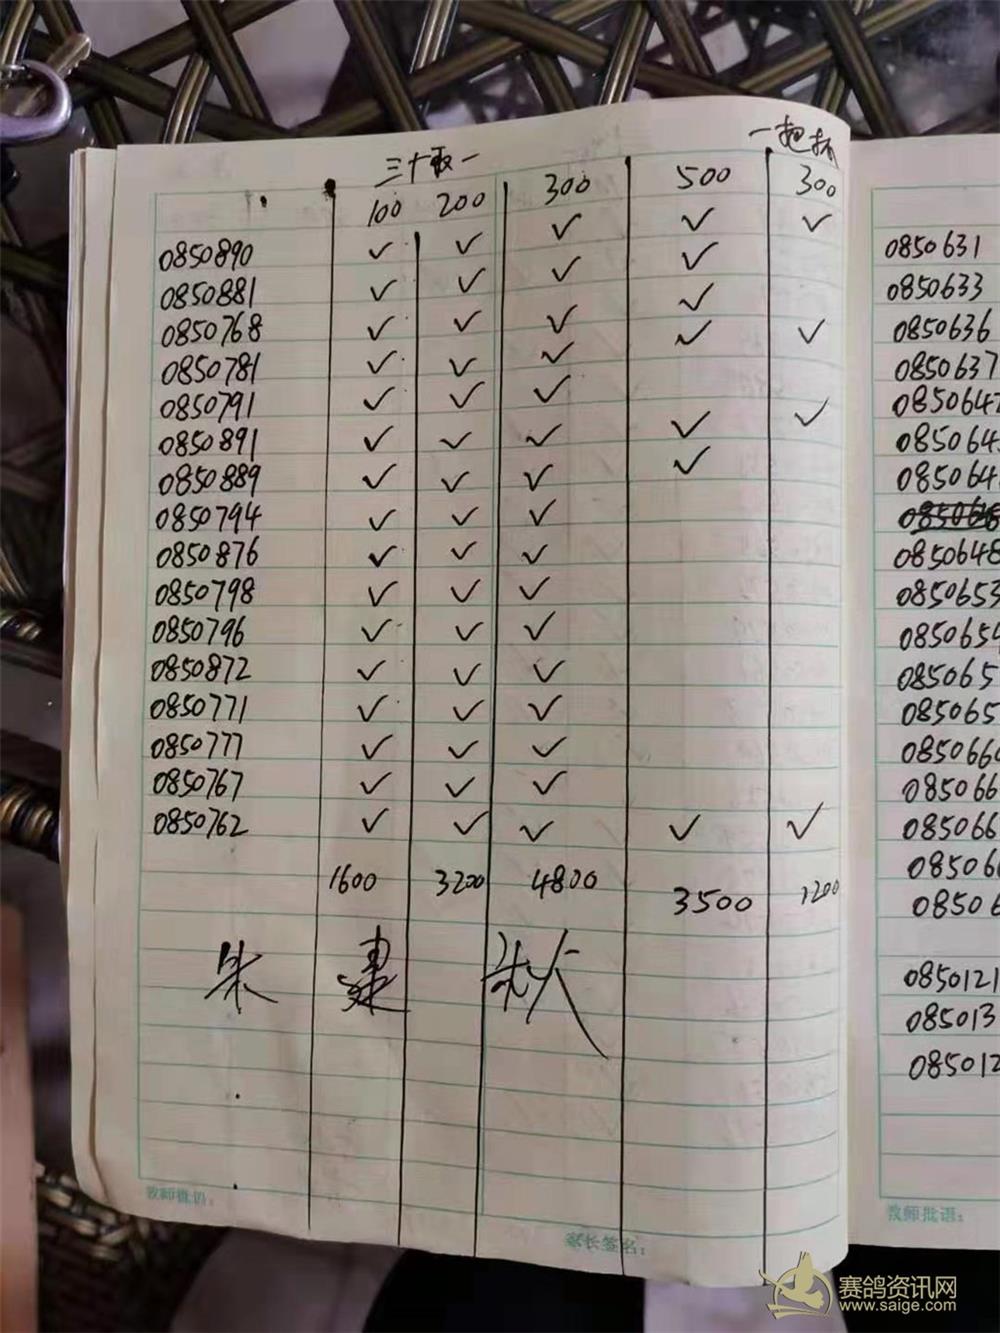 三十取一 一把抓
100 200 300 500 300
0850890 ✓ ✓ ✓ ✓ ✓
0850881 ✓ ✓ ✓ ✓
0850768 ✓ ✓ ✓ ✓
0850781 ✓ ✓ ✓ ✓ ✓
0850791 ✓ ✓ ✓
0850891 ✓ ✓ ✓ ✓ ✓
0850889 ✓ ✓ ✓ ✓
0850794 ✓ ✓ ✓
0850876 ✓ ✓ ✓
0850798 ✓ ✓ ✓
0850796 ✓ ✓ ✓
0850872 ✓ ✓ ✓
0850771 ✓ ✓ ✓
0850777 ✓ ✓ ✓
0850767 ✓ ✓ ✓
0850762 ✓ ✓ ✓ ✓ ✓
1600 3200 4800 3500 1200
朱
教师批语：
家长签名：
0850631
0850633
0850636
0850637
085064
085064
085064
0850648
0850653
085065
085065
085065
085066
085066
085066
08506
08506
0850121
085013
085012
教师批语：
赛鸽资讯网
www.saige.com